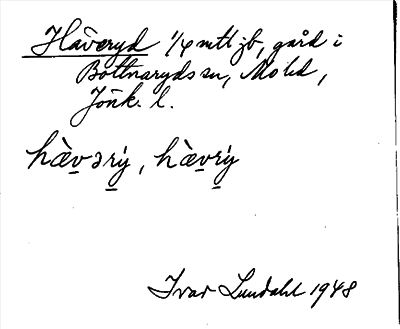 Håveryd 1/4 mtl jb, gård i
Bottnaryds sn, Mo hd,
Jönk. l.
hæ̀vərẏ, hæ̀vrẏ
Ivar Lundahl 1948